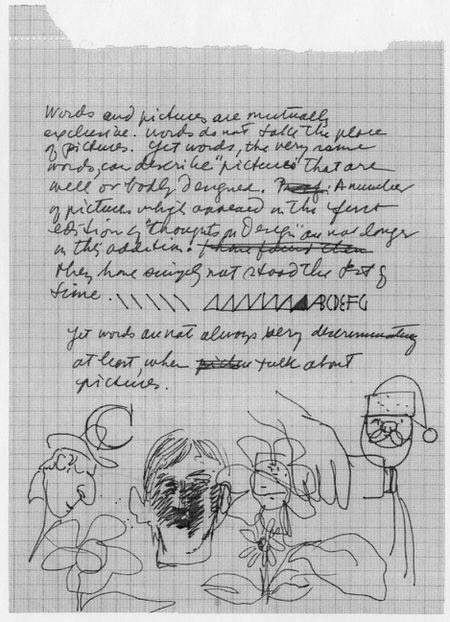 Words and pictures are mutually
exclusive. Words do not take the place
of pictures. Yet words, the very same
words, can describe "pictures" that are
well or badly designed. Proof: A number
of pictures which appeared in the first
edition of "Thoughts on Design" are not longer
in this addition. I have found then
they have simply not stood the test of
time.
ABCDEFG
Yet words are not always very descrimminating
at least, when talk about
pictures.
C